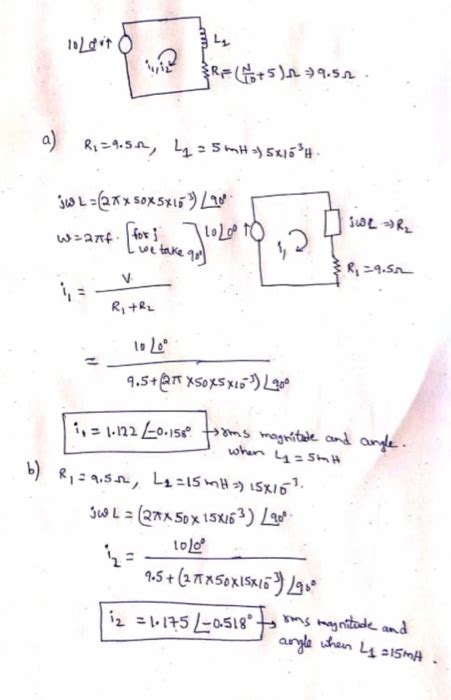 10∠0° v↑ L₁
i₁,i₂
R₁=(N/10+5)Ω ⇒ 9.5Ω.
a) R₁=9.5Ω, L₁=5mH ⇒ 5×10⁻³H.
jωL=(2π×50×5×10⁻³)∠90°
ω=2πf. [for j we take 90°]
10∠0° ↑ i₁ jωL ⇒ R₂
R₁=9.5Ω
i₁ = V / R₁+R₂
= 10∠0° / 9.5+(2π×50×5×10⁻³)∠90°
i₁ = 1.122∠-0.158° → rms magnitude and angle.
when L₁=5mH
b) R₁=9.5Ω, L₁=15mH ⇒ 15×10⁻³.
jωL=(2π×50×15×10⁻³)∠90°
i₂ = 10∠0° / 9.5+(2π×50×15×10⁻³)∠90°
i₂ = 1.175∠-0.518° → rms magnitude and
angle when L₁=15mH.